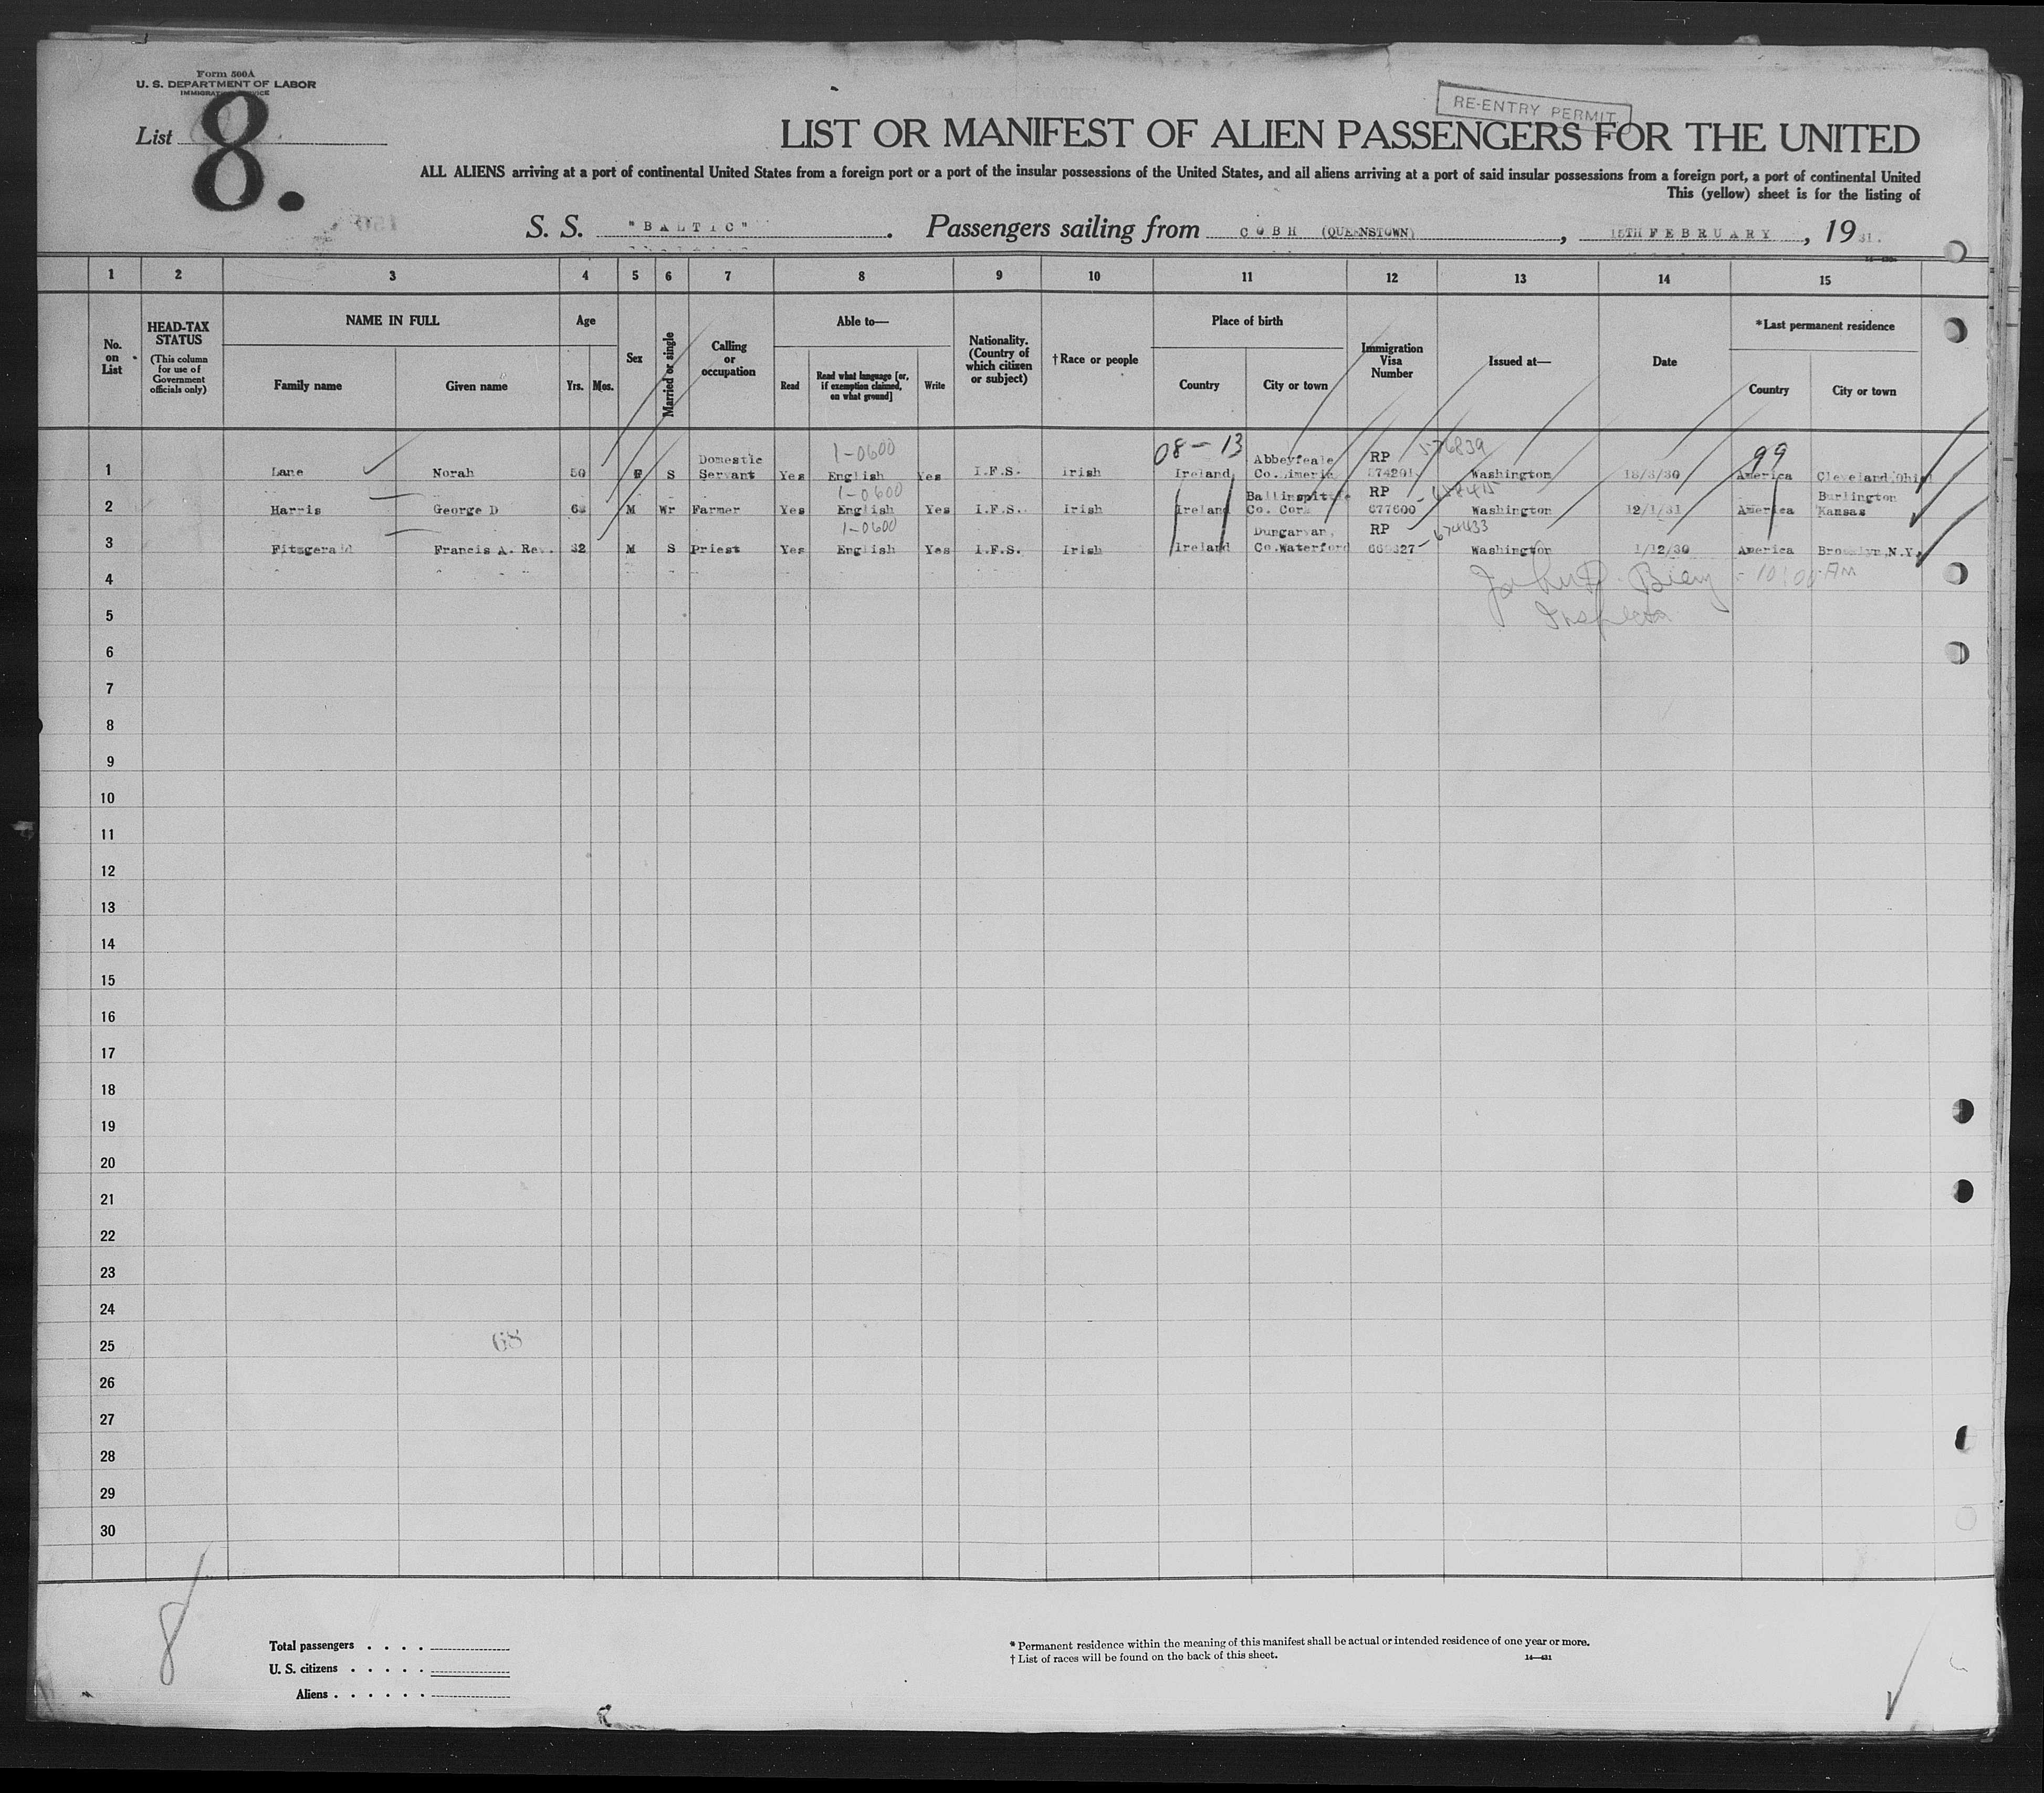 Form 500A
U. S. DEPARTMENT OF LABOR
IMMIGRATION SERVICE
List 8.
RE-ENTRY PERMIT
LIST OR MANIFEST OF ALIEN PASSENGERS FOR THE UNITED
ALL ALIENS arriving at a port of continental United States from a foreign port or a port of the insular possessions of the United States, and all aliens arriving at a port of said insular possessions from a foreign port, a port of continental United
This (yellow) sheet is for the listing of
S. S. "BALTIC". Passengers sailing from COBH (QUEENSTOWN), 15TH FEBRUARY, 1931.
1 2 3 4 5 6 7 8 9 10 11 12 13 14 15
No. on List
HEAD-TAX STATUS
(This column for use of Government officials only)
NAME IN FULL
Family name
Given name
Age
Yrs. Mos.
Sex
Married or single
Calling or occupation
Able to—
Read
Read what language [or, if exemption claimed, on what ground]
Write
Nationality. (Country of which citizen or subject)
†Race or people
Place of birth
Country
City or town
Immigration Visa Number
Issued at—
Date
*Last permanent residence
Country
City or town
1-0600 08-13 576839 99
Domestic Abbeyfeale RP
1 Lane Norah 50 F S Servant Yes English Yes I.F.S. Irish Ireland Washington 18/3/30 America Cleveland, Ohio
1-0600 Ballinspittle RP Burlington
2 Harris George D M Wr Farmer Yes English Yes I.F.S. Irish Ireland Co. Cork 677600 Washington 12/1/31 America Kansas
1-0600 Dungarvan, RP -674433
3 Fitzgerald Francis A. Rev. 32 M S Priest Yes English Yes I.F.S. Irish Ireland Co.Waterford Washington 1/12/30 America Brooklyn, N.Y.
4 10:00 AM
5 Inspector
6
7
8
9
10
11
12
13
14
15
16
17
18
19
20
21
22
23
24
25 68
26
27
28
29
30
8
Total passengers
U. S. citizens
Aliens
* Permanent residence within the meaning of this manifest shall be actual or intended residence of one year or more.
† List of races will be found on the back of this sheet.
14—431